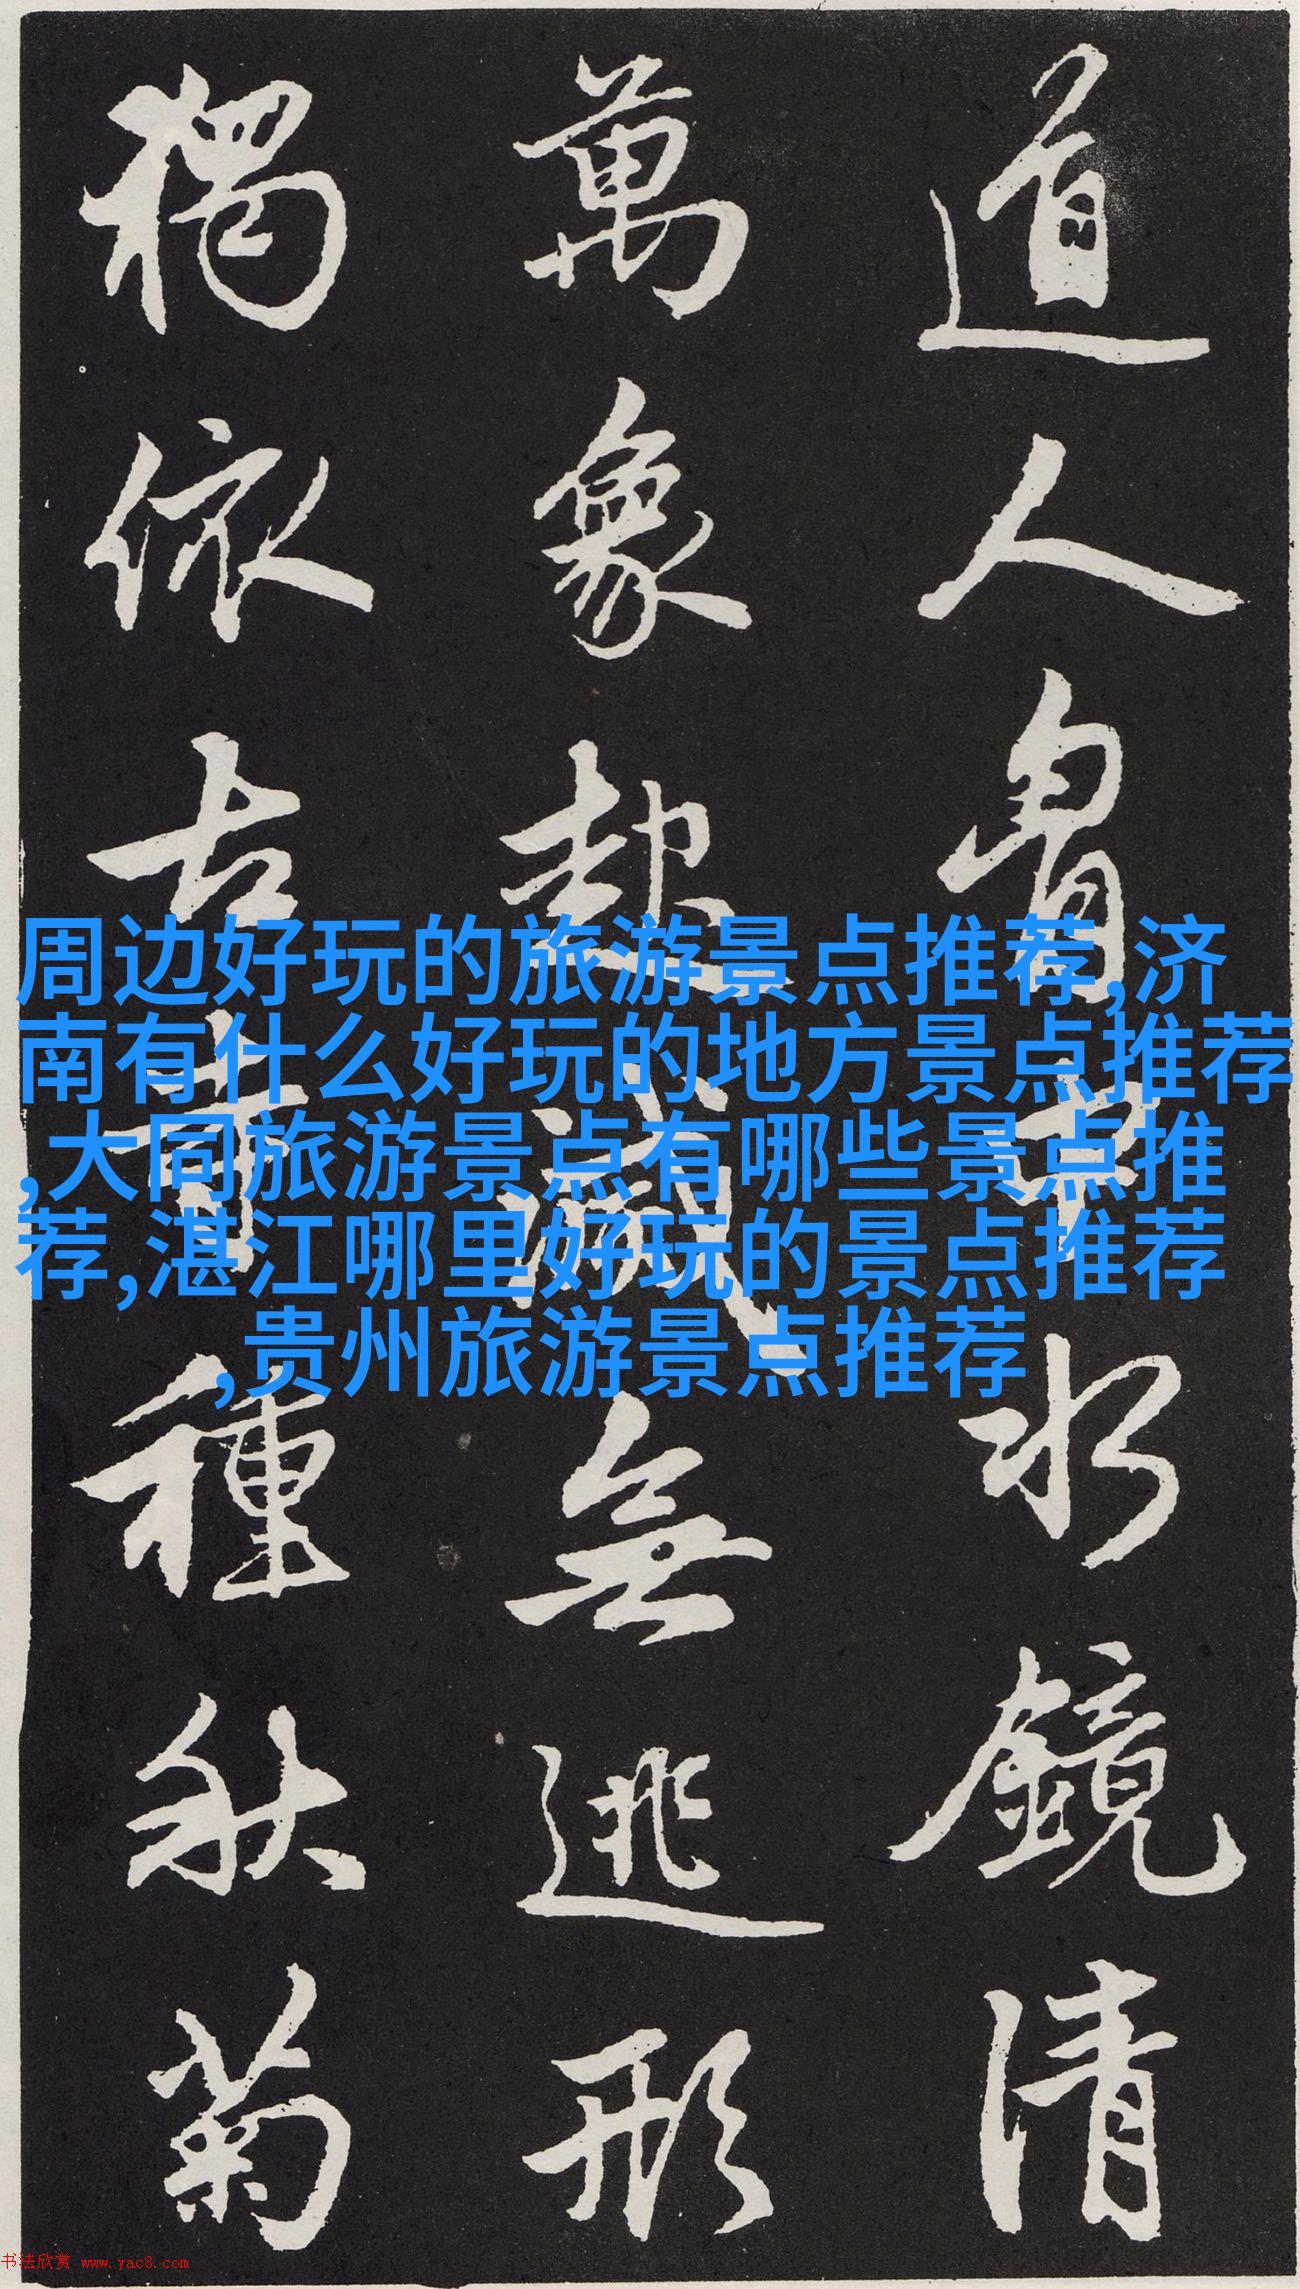 道人胷中水鏡清
萬象起滅無逃形
獨依古寺種秋菊
周边好玩的旅游景点推荐,济
南有什么好玩的地方景点推荐
,大同旅游景点有哪些景点推
荐,湛江哪里好玩的景点推荐
,贵州旅游景点推荐
书法欣赏 www.yac8.com